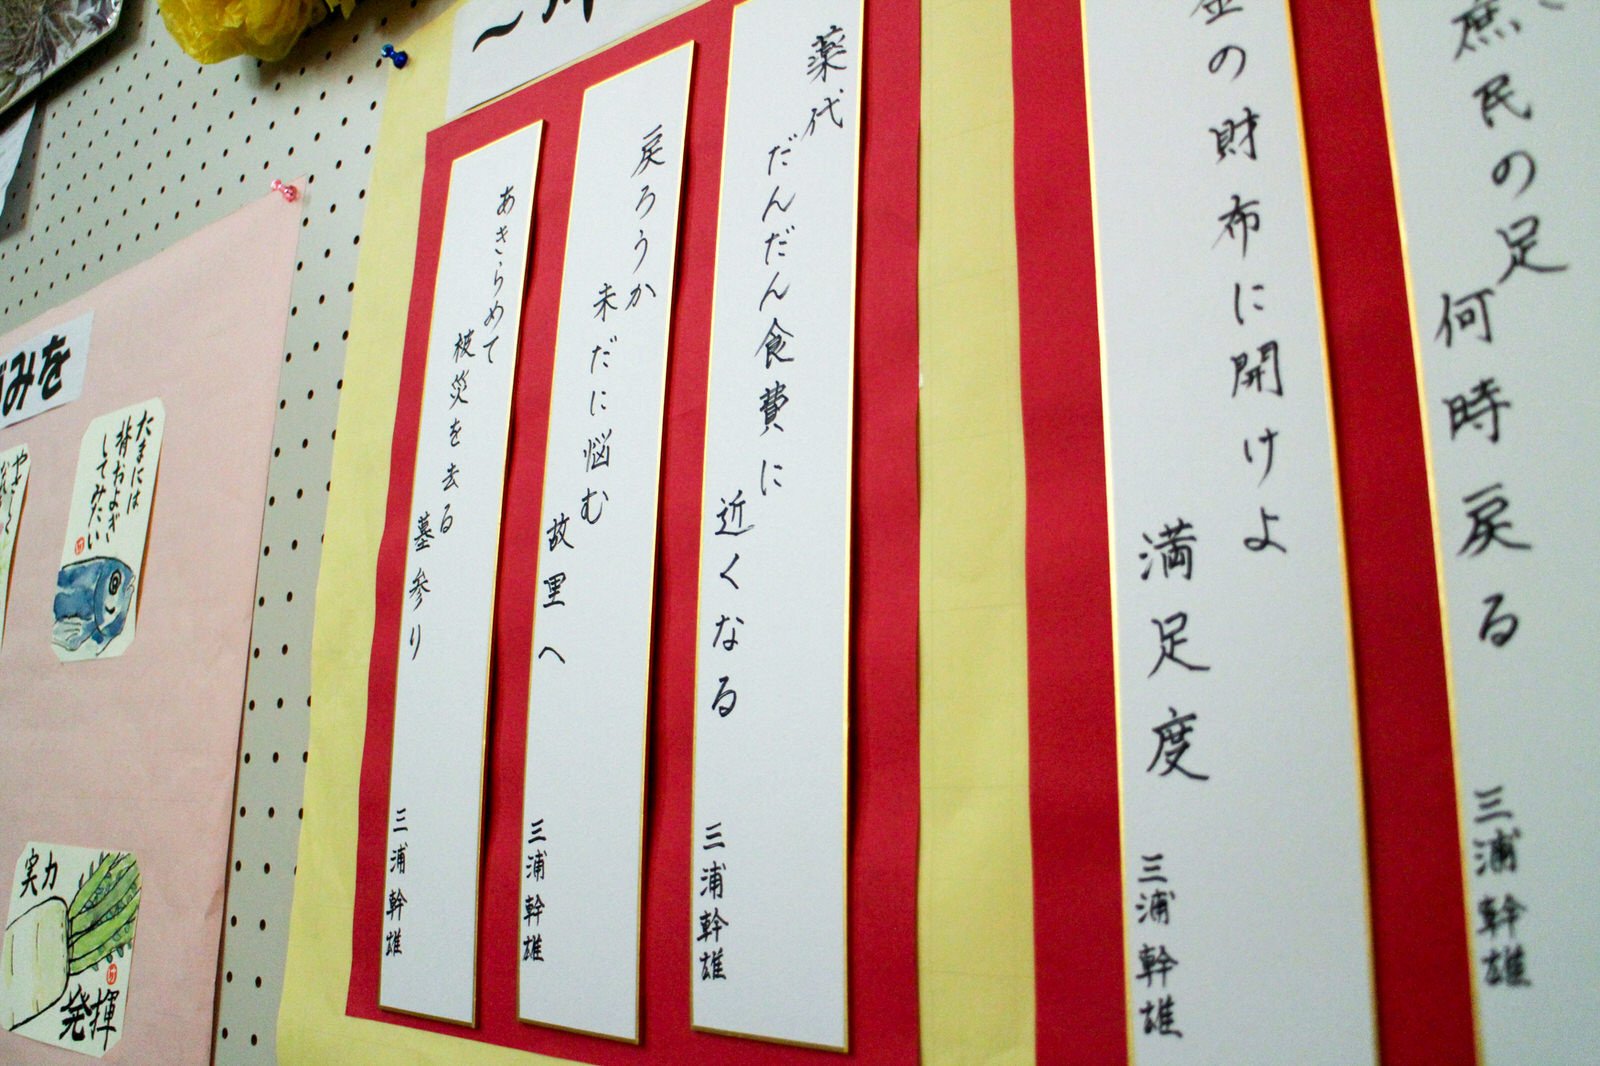 庶民の足
何時戻る
三浦幹雄
の財布に
開けよ
満足度
三浦幹雄
薬代
だんだん食費に
近くなる
三浦幹雄
戻ろうか
未だに悩む
故里へ
三浦幹雄
あきらめて
被災を去る
墓参り
三浦幹雄
みを
たまには
背およぎ
してみたい
実力
発揮